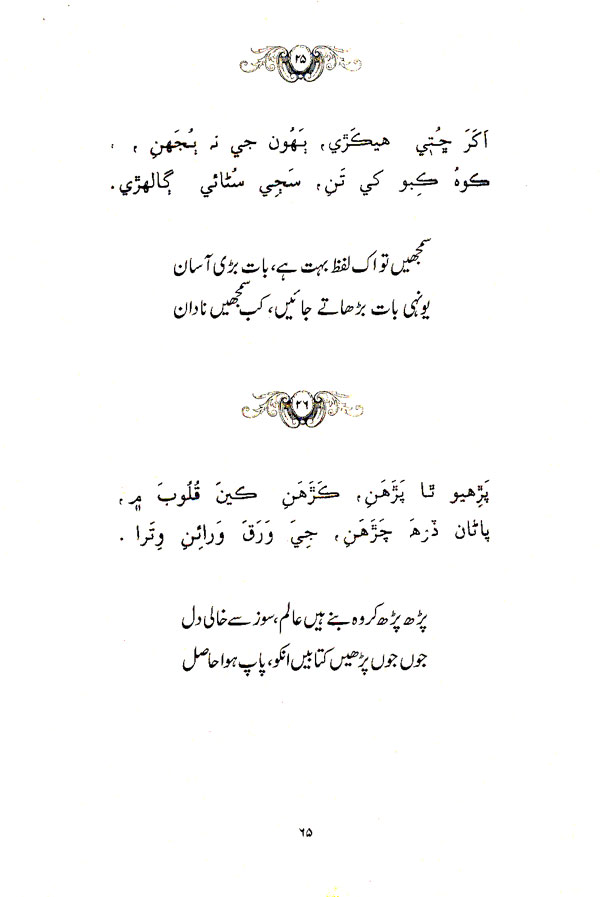 ۲۵
اَکَرَ چُتِي هيڪَڙي، ٻَهُون جي نہ ٻُجهَنِ ،
ڪوهُ ڪِبو کي تَنِ، سَڄِي سُڻائي ڳالهڙي.
سمجھیں تو اک لفظ بہت ہے، بات بڑی آسان
یونہی بات بڑھاتے جائیں، کب سمجھیں نادان
۲۶
پَڙِهيو ٿا پَڙَهَنِ، ڪَڙَهَنِ ڪينَ قُلُوبَ ۾،
پاڻان ڏرهَ چَڙَهَنِ، جِيَ وَرَقَ وَرائِنِ وِتَرا .
پڑھ پڑھ کر وہ بنے ہیں عالم، سوز سے خالی دل
جوں جوں پڑھیں کتابیں انکو، پاپ ہوا حاصل
۶۵